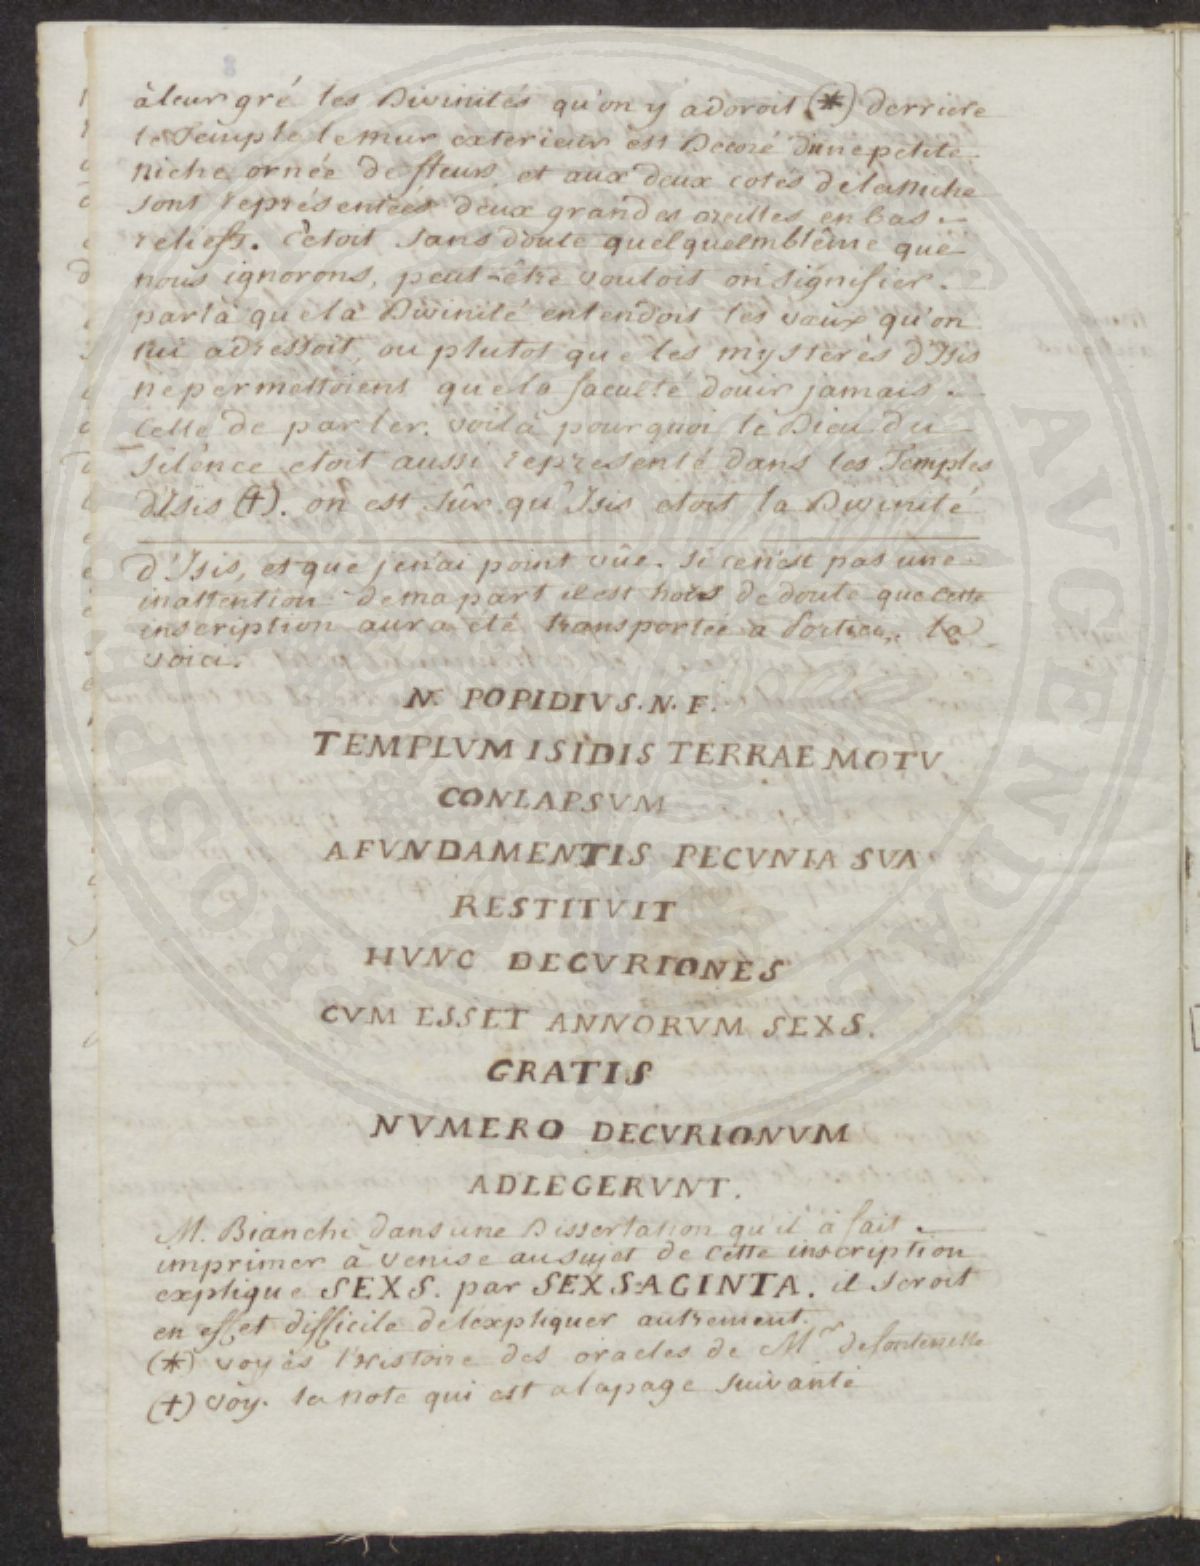 à leur gré les Divinités qu'on y adoroit (*) derriere
le Temple le mur exterieur est Decoré d'une petite
niche ornée de fleurs, et aux deux cotés de la niche
sont représentées deux grandes oreilles en bas
reliefs. C'etoit sans doute quelque emblême que
nous ignorons, peut-être vouloit on signifier
par là que la Divinité entendoit les vœux qu'on
lui adressoit, ou plutot que les mysteres d'Isis
ne permettoient que la faculté d'ouir jamais
celle de parler. voilà pourquoi le Dieu du
silence etoit aussi representé dans les Temples
d'Isis (+). on est sûr qu'Isis etoit la Divinité
d'Isis, et que je n'ai point vûe. si ce n'est pas une
inattention de ma part il est hors de doute que cette
inscription aura été transportée à Portici, la
voici.
N. POPIDIVS. N. F.
TEMPLVM ISIDIS TERRAE MOTV
CONLAPSVM
A FVNDAMENTIS PECVNIA SVA
RESTITVIT
HVNC DECVRIONES
CVM ESSET ANNORVM SEXS.
GRATIS
NVMERO DECVRIONVM
ADLEGERVNT.
M. Bianchi dans une Dissertation qu'il a fait
imprimer à Venise au sujet de cette inscription
explique SEXS. par SEXSAGINTA. il seroit
en effet difficile de l'expliquer autrement.
(*) voyès l'Histoire des oracles de Mr. de fontenelle
(+) voy. la note qui est a la page suivante
PROSPERITATI AVGENDAE